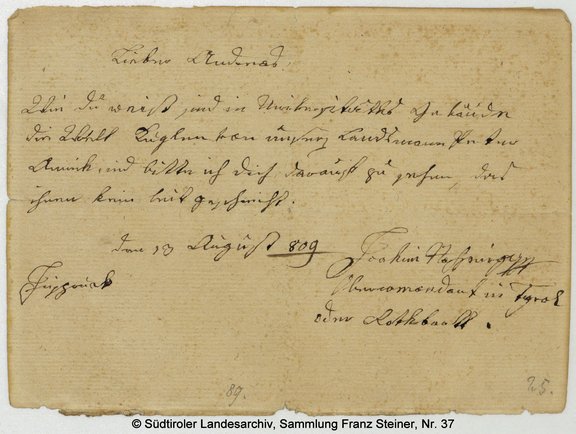 Lieber Andreas.
Wie du weist sind in Universitäths Gebäude
die Welt Kuglen von unserz Landsmann Peter
Annik, und bitte ich dich darauf zu gehen, das
ihnen kein leit geschieht.
den 13 August 809
Joachim Haspinger
Inspruck
Obercomendant in Tyrol
oder Rothbart.
89.
25.
© Südtiroler Landesarchiv, Sammlung Franz Steiner, Nr. 37